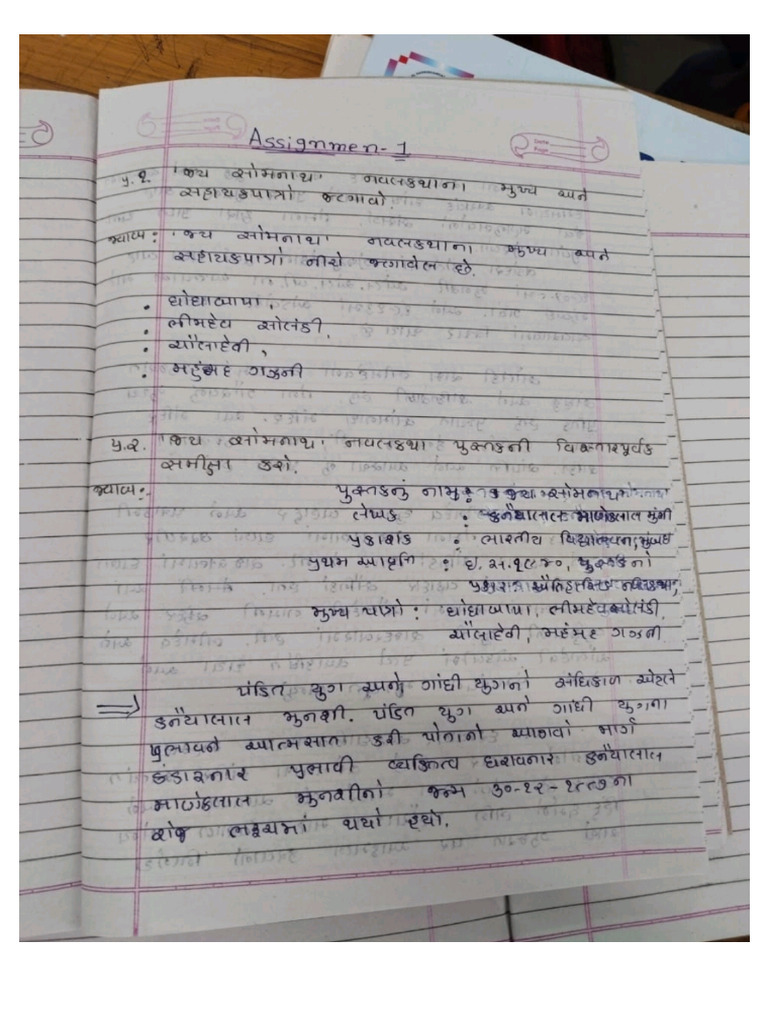 Assignmen-1
પ્ર.૧. 'જય સોમનાથ' નવલકથાના મુખ્ય અને
સહાયકપાત્રો જણાવો.
જવાબ: 'જય સોમનાથ' નવલકથાના મુખ્ય અને
સહાયકપાત્રો નીચે જણાવેલ છે.
• ઘોઘાબાપા,
• ભીમદેવ સોલંકી,
• ચૌલાદેવી,
• મહંમદ ગઝની
પ્ર.૨. 'જય સોમનાથ' નવલકથા પુસ્તકની વિસ્તારપૂર્વક
સમીક્ષા કરો.
જવાબ:- પુસ્તકનું નામ : જય સોમનાથ
લેખક : કનૈયાલાલ માણેકલાલ મુંશી
પ્રકાશક : ભારતીય વિદ્યાભવન, મુંબઇ
પ્રથમ આવૃતિ : ઇ.સ.૧૯૪૦, પુસ્તકનો
પ્રકાર ઐતિહાસિક નવલકથા,
મુખ્ય પાત્રો : ઘોઘાબાપા, ભીમદેવ સોલંકી,
ચૌલાદેવી, મહંમદ ગઝની
⇒ પંડિત યુગ અને ગાંધી યુગનો સંધિકાળ એટલે
કનૈયાલાલ મુનશી. પંડિત યુગ અને ગાંધી યુગના
પ્રભાવને આત્મસાત કરી પોતાનો આગવો માર્ગ
કંડારનાર પ્રભાવી વ્યકિત્વ ધરાવનાર કનૈયાલાલ
માણેકલાલ મુનશીનો જન્મ ૩૦-૧૨-૧૮૮૭ના
રોજ ભરૂચમાં થયો હયો.